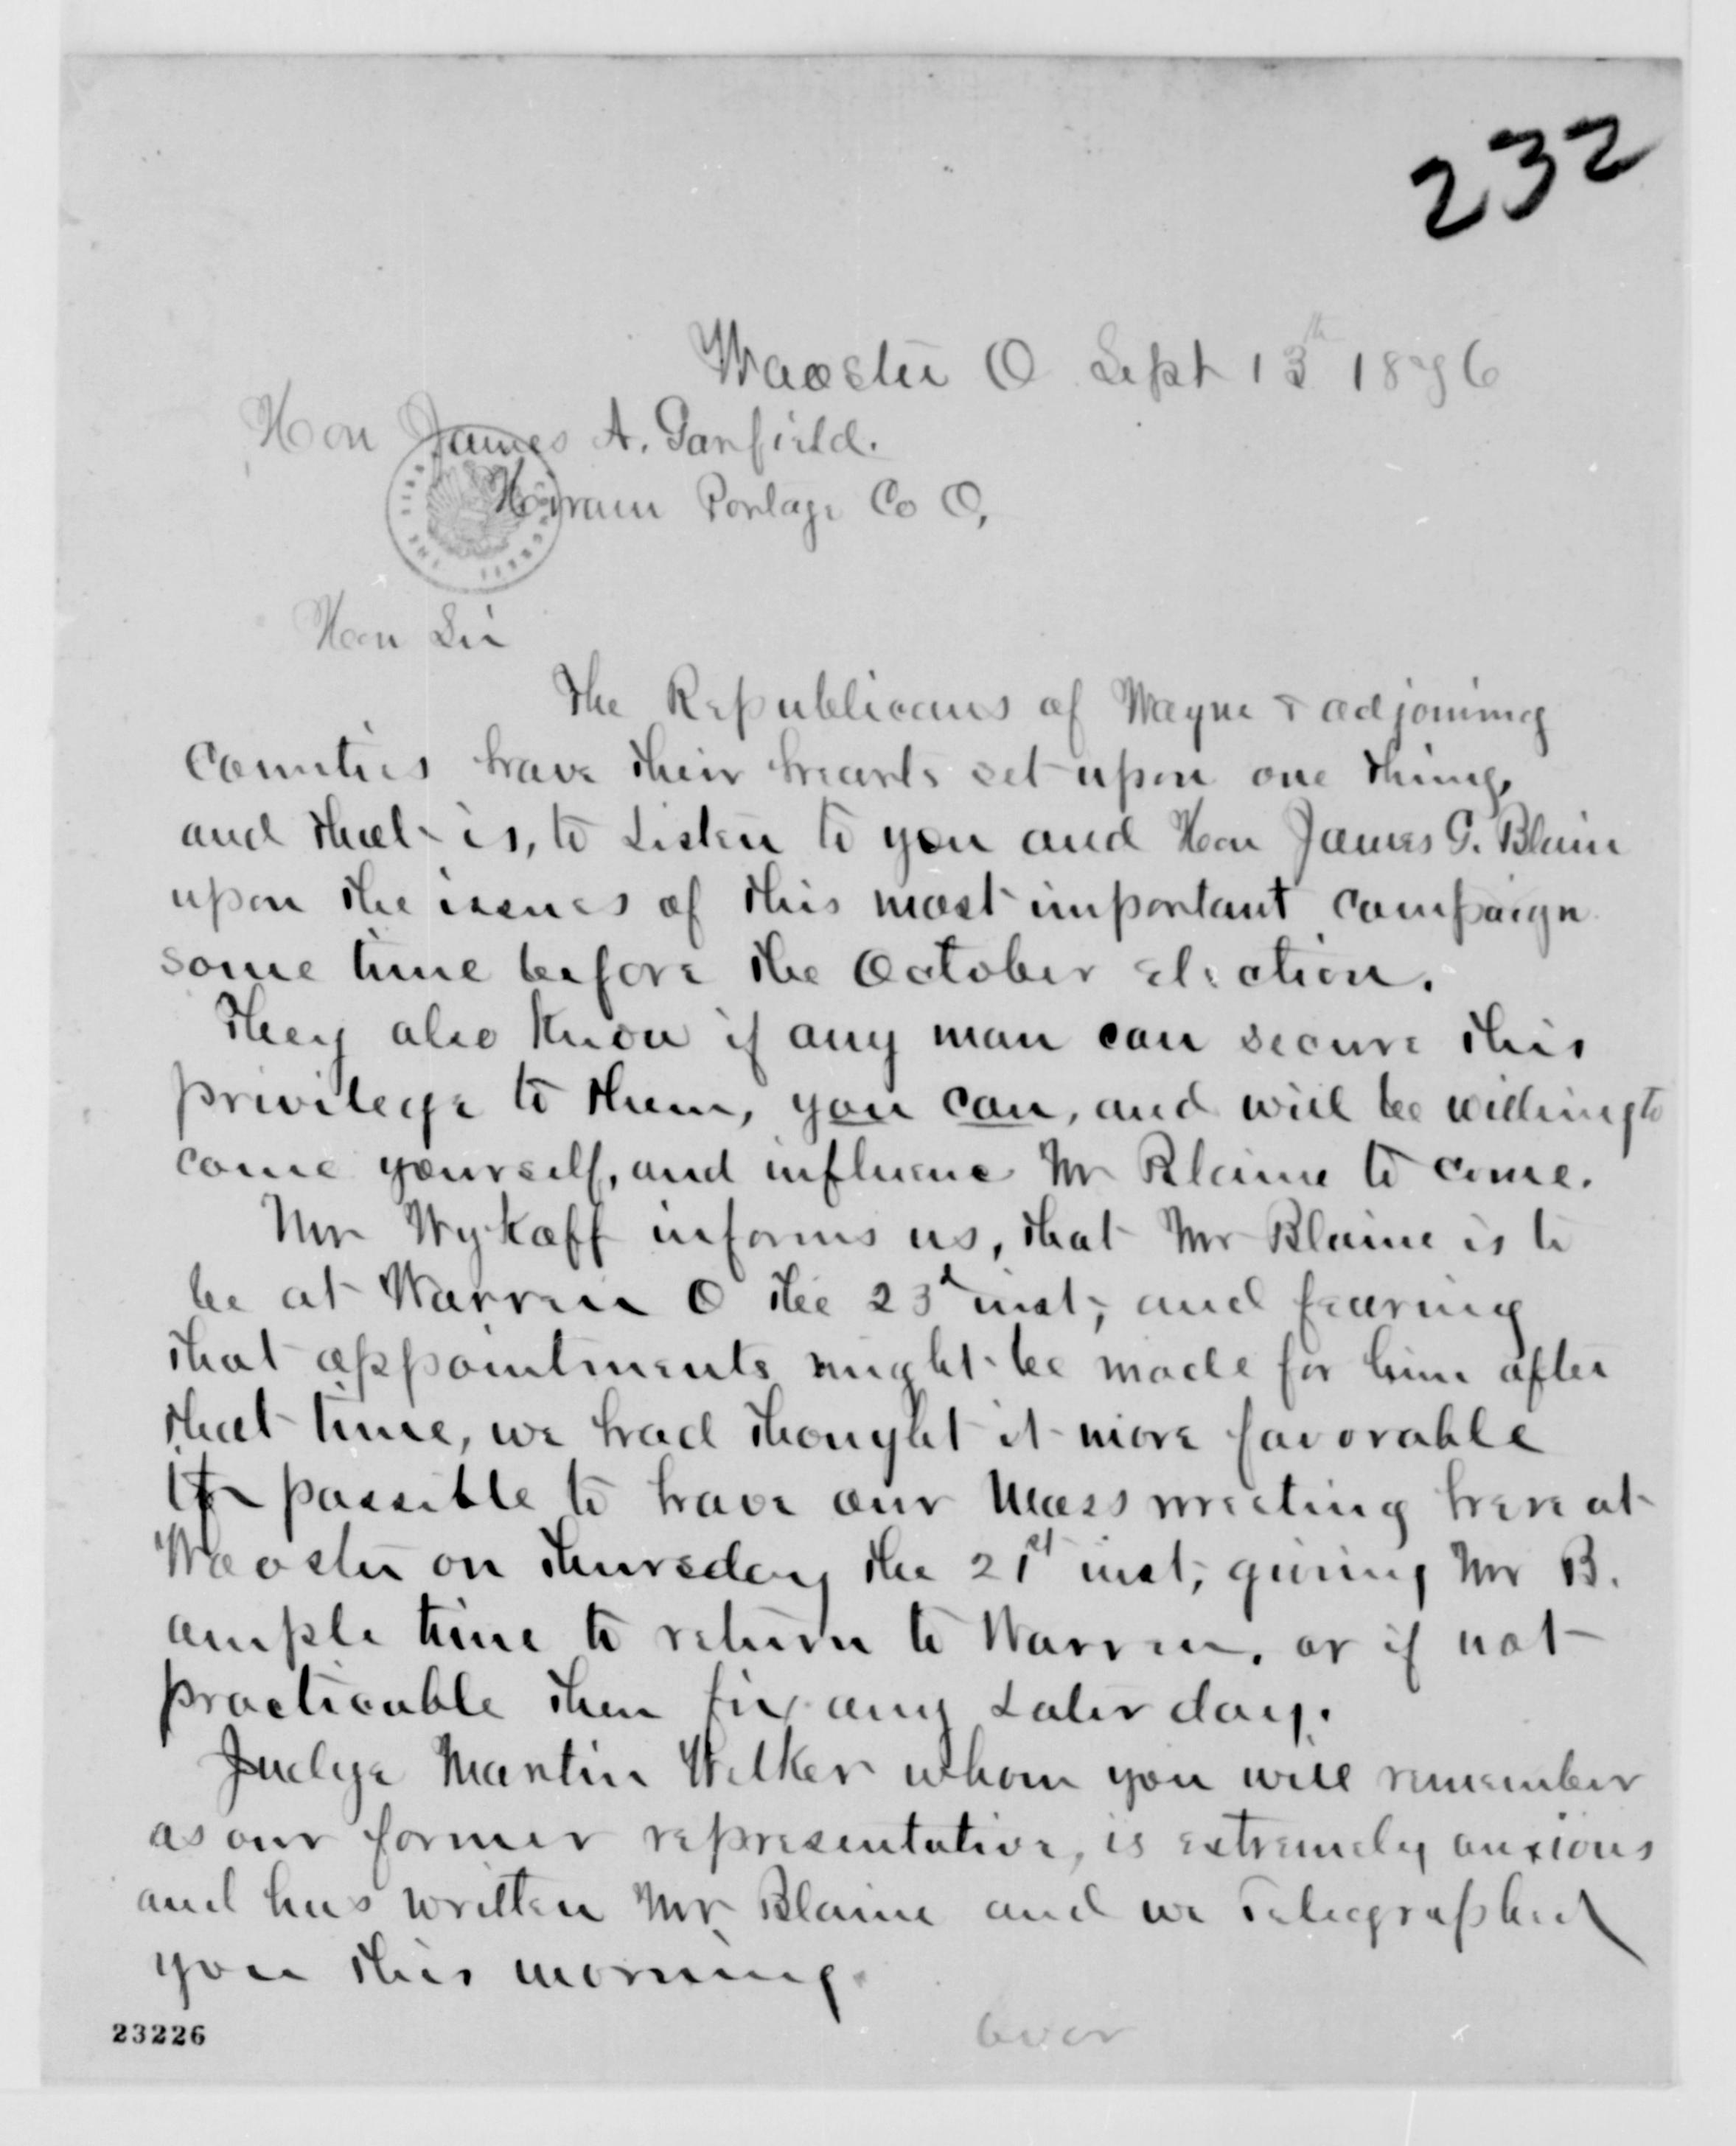 232
Wooster O Sept 13th 1876
Hon James A. Garfield.
Hiram Portage Co O,
Hon Sir
The Republicans of Wayne & adjoining
Counties have their hearts set upon one thing,
and that is, to Listen to you and Hon James G. Blain
upon the issues of this most important campaign
some time before the October election.
They also Know if any man can secure this
privilege to them, you can, and will be willing to
come yourself, and influence Mr Blaine to come.
Mr Wykoff informs us, that Mr Blaine is to
be at Warren O the 23d inst, and fearing
that appointments might be made for him after
that time, we had thought it more favorable
if possible to have our Mass meeting here at
Wooster on Thursday the 21st inst, giving Mr B.
ample time to return to Warren. or if not
practicable then fix any Later day.
Judge Martin Welker whom you will remember
as our former representative, is extremely anxious
and has written Mr Blaine and we Telegraphed
you this morning.
over
23226